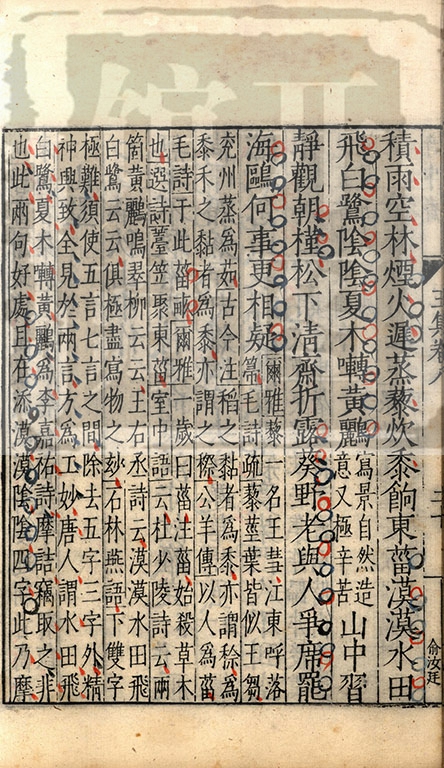 積雨空林煙火遲蒸藜炊黍餉東菑漠漠水田
飛白鷺陰陰夏木囀黃鸝寫景自然造意又極辛苦山中習
靜觀朝槿松下清齋折露葵野老與人爭席罷
海鷗何事更相疑爾雅藜一名王彗江東呼落
箒毛詩疏藜莖葉皆似王芻
兗州蒸爲茹古今注稻之黏者爲黍亦謂稌爲
黍禾之黏者爲黍亦謂之穄公羊傳以人爲菑
毛詩于此菑畝爾雅一歲曰菑注菑始殺草木
也選詩薹笠聚東菑室中語云杜少陵詩云兩
箇黃鸝鳴翠柳云云王右丞詩云漠漠水田飛
白鷺云云俱極盡寫物之妙石林燕語下雙字
極難須使五言七言之間除去五字三字外精
神興致全見於兩言方爲工妙唐人謂水田飛
白鷺夏木囀黃鸝爲李嘉祐詩摩詰竊取之非
也此兩句好處正在添漠漠陰陰四字此乃摩
俞汝廷